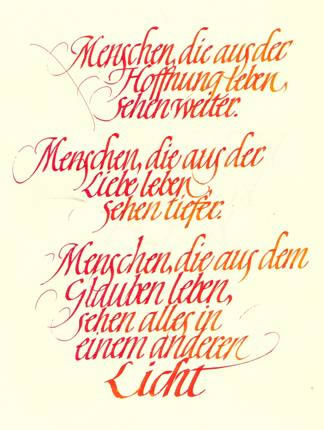 Menschen, die aus der
Hoffnung leben,
sehen weiter.
Menschen, die aus der
Liebe leben,
sehen tiefer.
Menschen, die aus dem
Glauben leben,
sehen alles in
einem anderen
Licht